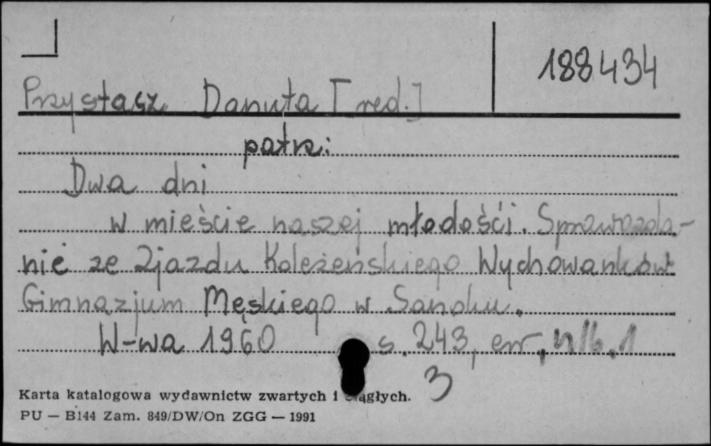 188434
Przystasz Danuta [red.]
patrz:
Dwa dni
w mieście naszej młodości. Sprawozda-
nie ze Zjazdu Koleżeńskiego Wychowanków
Gimnazjum Męskiego w Sanoku.
W-wa 1960 s. 243, err, nlb. 1
3
Karta katalogowa wydawnictw zwartych i ciągłych.
PU — B144 Zam. 849/DW/On ZGG — 1991